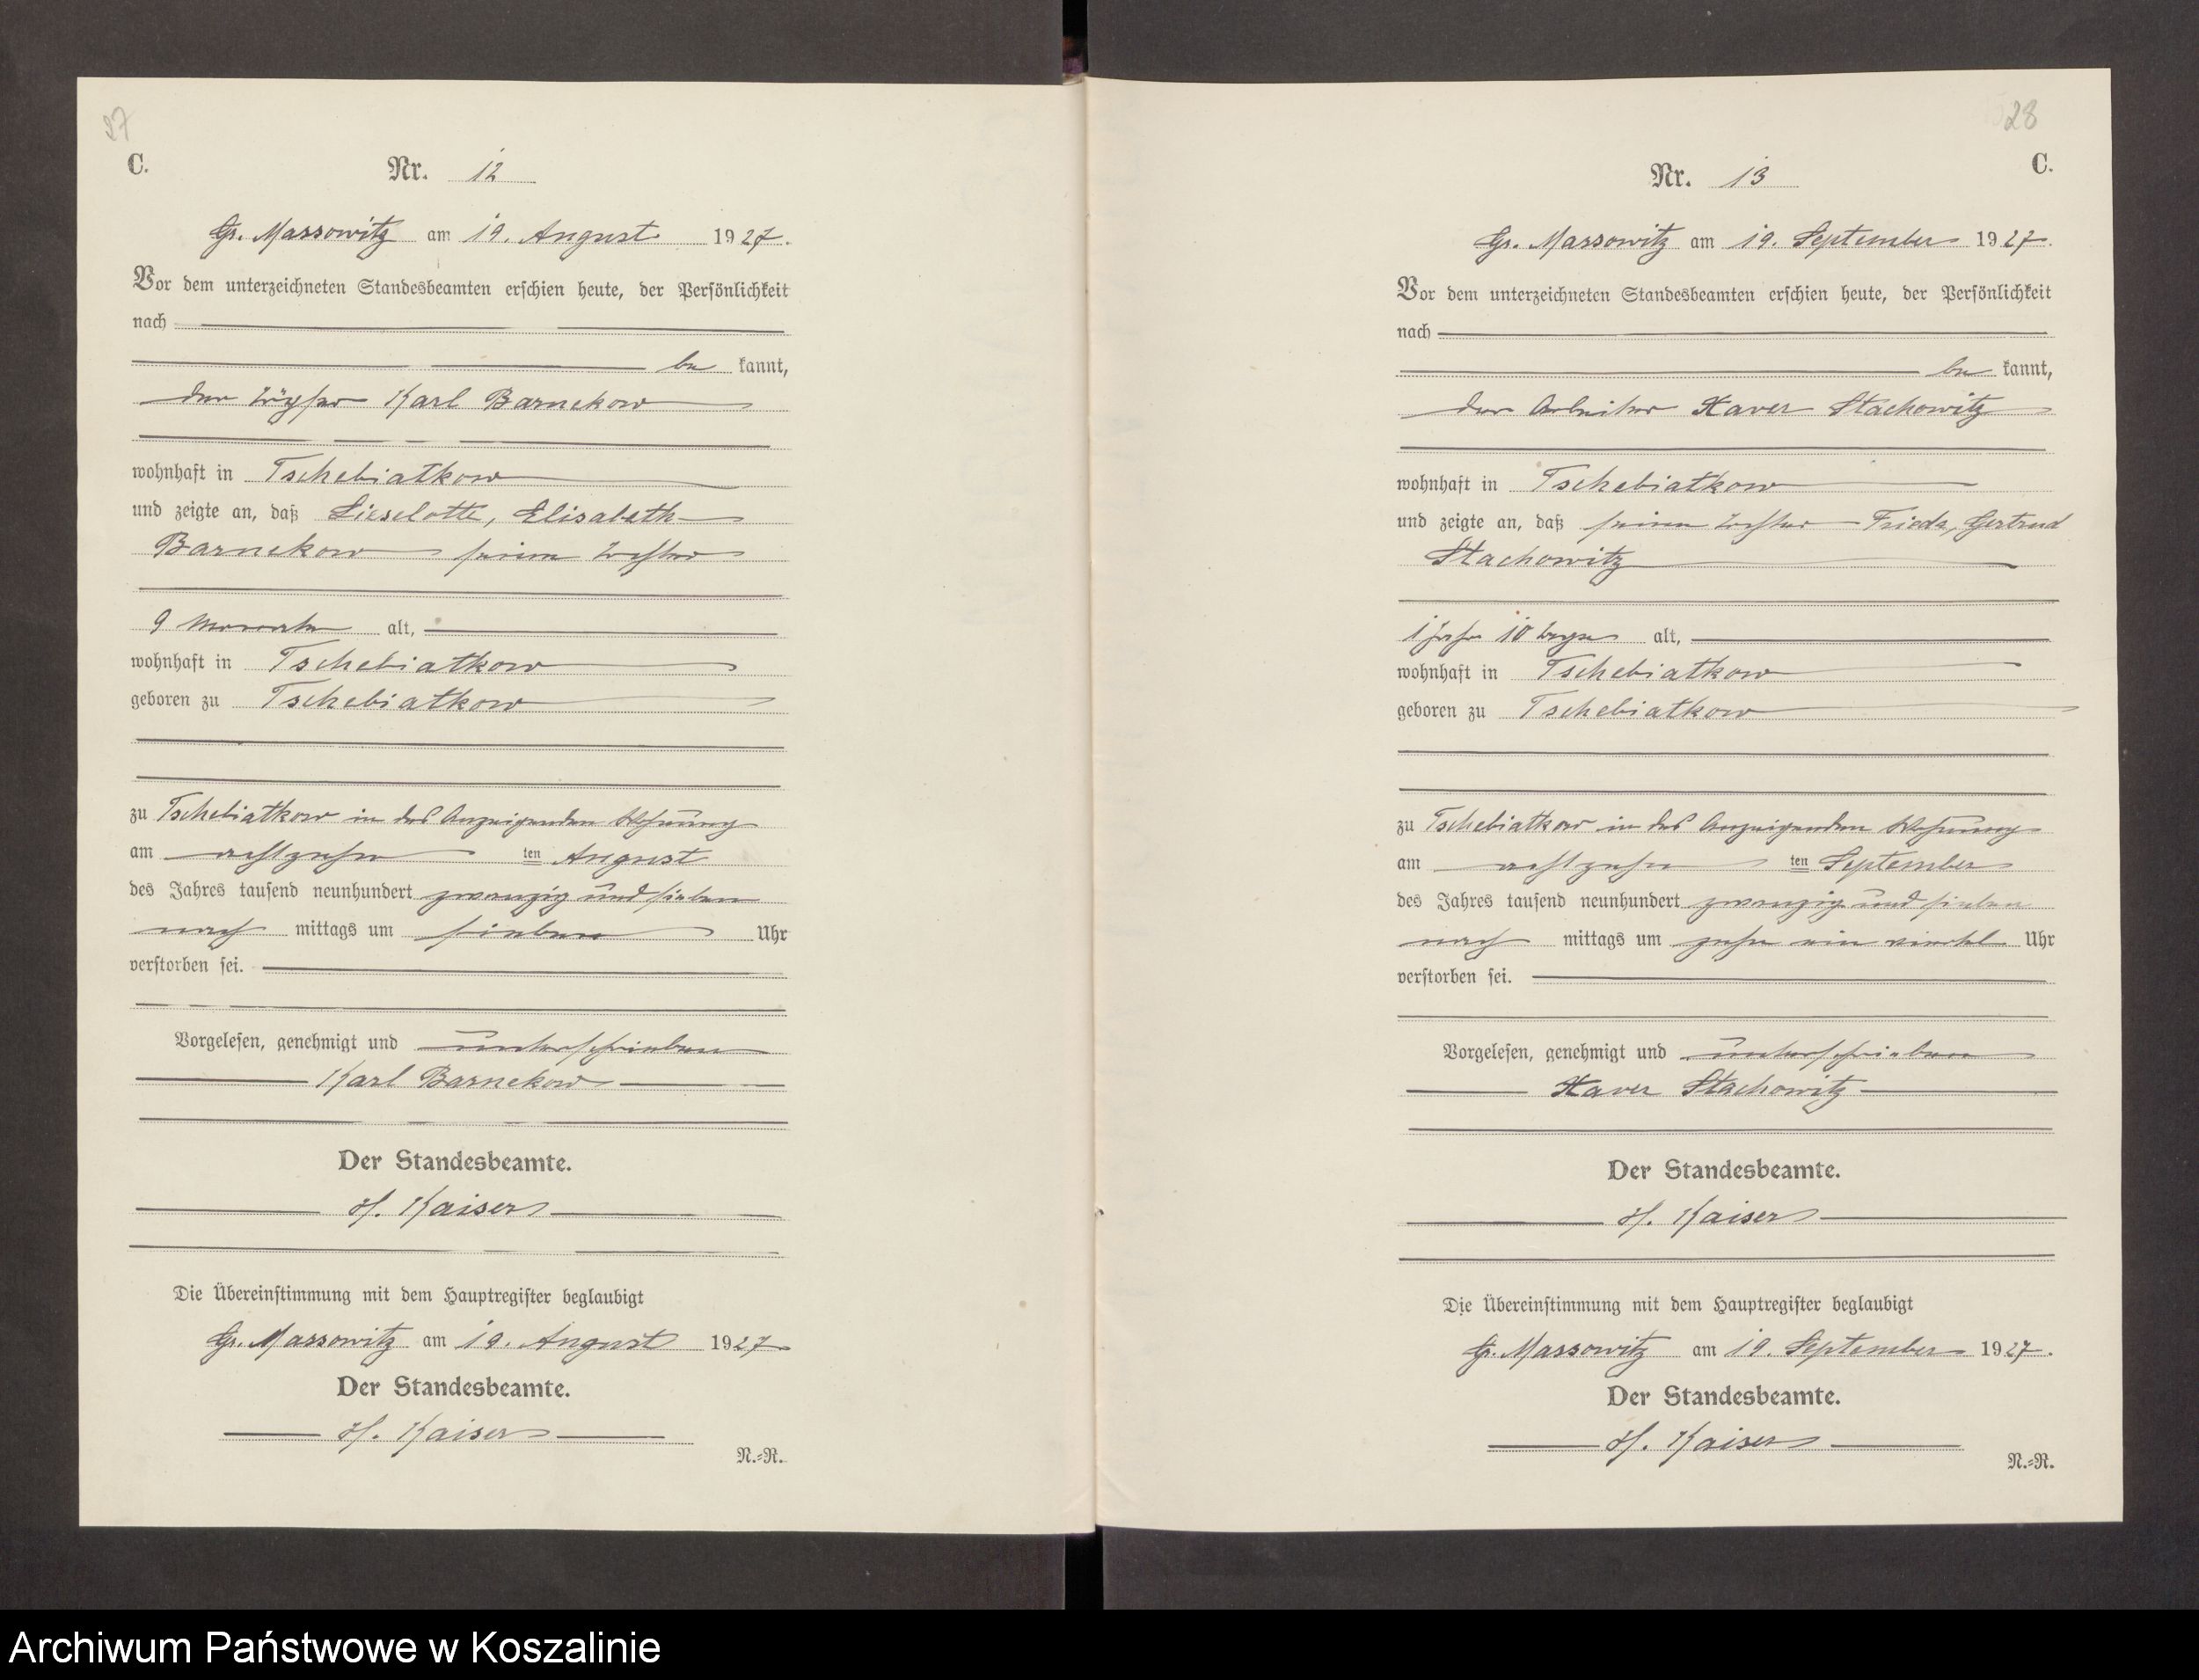 27
C.
Nr. 12
Gr. Massowitz am 19. August 1927.
Vor dem unterzeichneten Standesbeamten erschien heute, der Persönlichkeit
nach
be kannt,
der Karl Barnekow
wohnhaft in Tschebiatkow
und zeigte an, daß Lieselotte, Elisabeth
Barnekow seine Tochter
9 Monate alt,
wohnhaft in Tschebiatkow
geboren zu Tschebiatkow
zu Tschebiatkow in des Anzeigenden Wohnung
am achtzehn ten August
des Jahres tausend neunhundert zwanzig und sieben
nach mittags um sieben Uhr
verstorben sei.
Vorgelesen, genehmigt und unterschrieben
Karl Barnekow
Der Standesbeamte.
H. Kaiser
Die Übereinstimmung mit dem Hauptregister beglaubigt
Gr. Massowitz am 19. August 1927
Der Standesbeamte.
H. Kaiser
N.=R.
28
C.
Nr. 13
Gr. Massowitz am 19. September 1927.
Vor dem unterzeichneten Standesbeamten erschien heute, der Persönlichkeit
nach
be kannt,
der Arbeiter Xaver Stachowitz
wohnhaft in Tschebiatkow
und zeigte an, daß seine Tochter Frieda, Gertrud
Stachowitz
1 Jahr 10 Tage alt,
wohnhaft in Tschebiatkow
geboren zu Tschebiatkow
zu Tschebiatkow in des Anzeigenden Wohnung
am achtzehn ten September
des Jahres tausend neunhundert zwanzig und sieben
nach mittags um zehn ein viertel Uhr
verstorben sei.
Vorgelesen, genehmigt und unterschrieben
Xaver Stachowitz
Der Standesbeamte.
H. Kaiser
Die Übereinstimmung mit dem Hauptregister beglaubigt
Gr. Massowitz am 19. September 1927.
Der Standesbeamte.
H. Kaiser
N.=R.
Archiwum Państwowe w Koszalinie